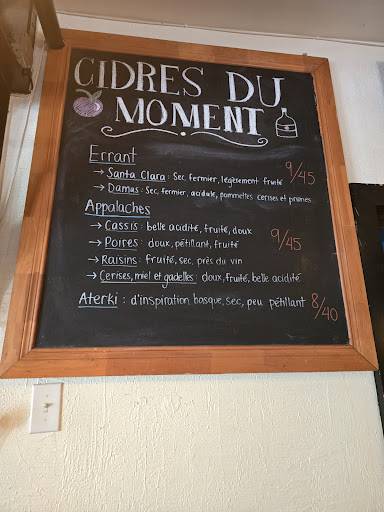 CIDRES DU
MOMENT
Errant
→ Santa Clara : Sec, fermier, légèrement fruité 9/45
→ Damas : Sec, fermier, acidulé, pommettes cerises et prunes
Appalaches
→ Cassis : belle acidité, fruité, doux
→ Poires : doux, pétillant, fruité 9/45
→ Raisins : fruité, sec, près du vin
→ Cerises, miel et gadelles : doux, fruité, belle acidité
Aterki : d'inspiration basque, sec, peu pétillant 8/40